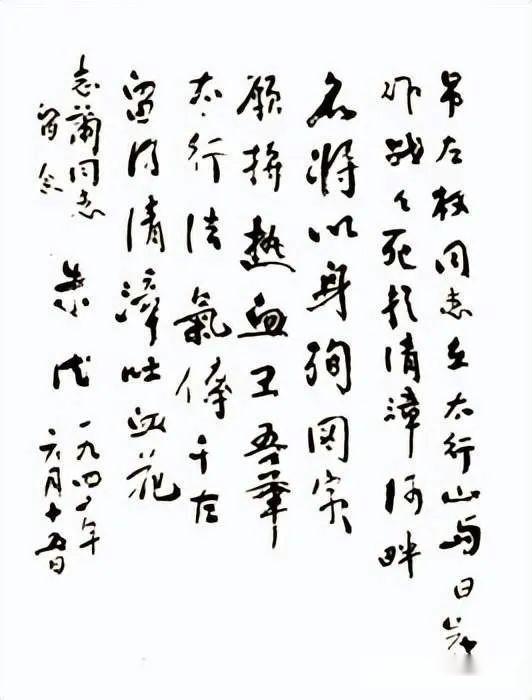 吊左权同志在太行山与日寇
作战々死於清漳河畔
名将以身殉国家
願拚热血卫吾華
太行浩氣傳千古
留得清漳吐血花
志蘭同志
留念
朱德
一九四二年
六月十五日